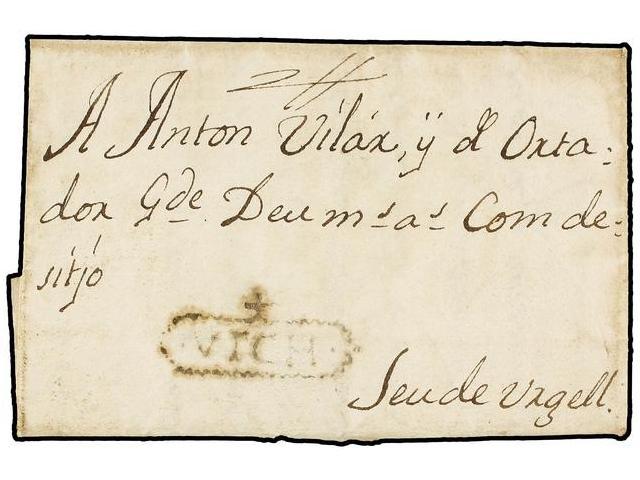 A Anton Vilár, ÿ dl Orta=
dor Gde Deu ms as Com de=
sitjó
VICH
Seu de Urgell.